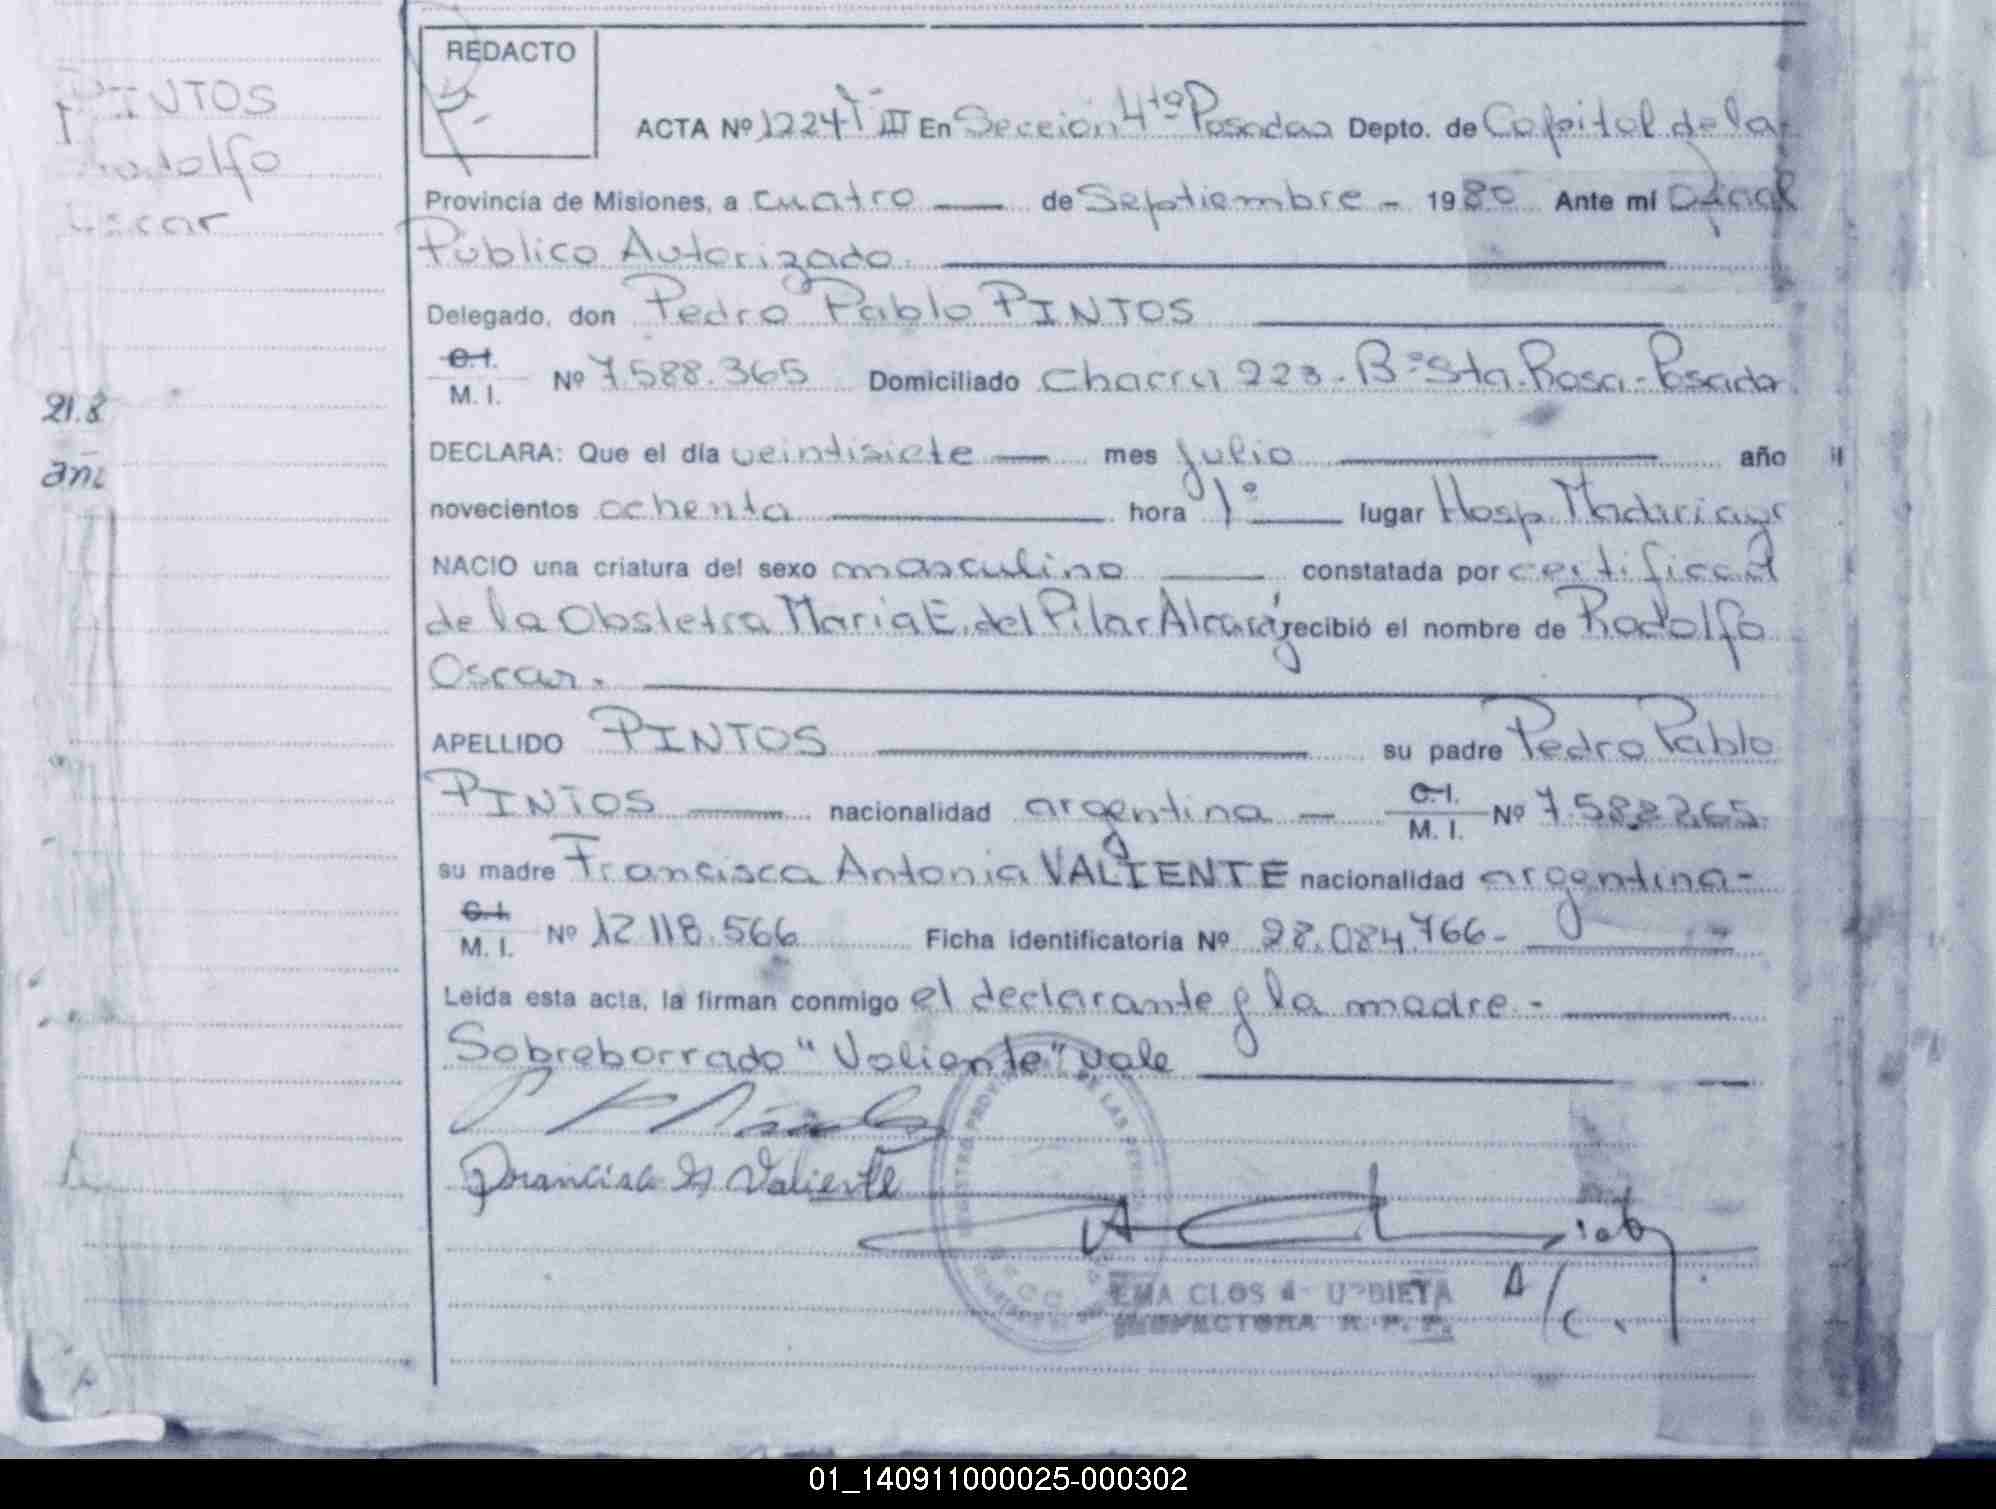 PINTOS
Rodolfo
Oscar
21.8
REDACTO
ACTA Nº 1224 T° III En Sección 4ta Posadas Depto. de Capital de la
Provincia de Misiones, a cuatro de Septiembre - 1980 Ante mí Oficial
Público Autorizado.
Delegado, don Pedro Pablo PINTOS
C.I.
M. I. Nº 7.588.365 Domiciliado Chacra 223 - B° Sta. Rosa - Posadas
DECLARA: Que el día veintisiete mes julio año
novecientos ochenta hora 1° lugar Hosp. Madariaga
NACIO una criatura del sexo masculino constatada por certificad
de la Obstetra Maria E. del Pilar Alcaráz recibió el nombre de Rodolfo
Oscar.
APELLIDO PINTOS su padre Pedro Pablo
PINTOS nacionalidad argentina C.I.
M. I. Nº
su madre Francisca Antonia VALIENTE nacionalidad argentina -
C.I.
M. I. Nº 12.118.566 Ficha identificatoria Nº 28.084.766 -
Leída esta acta, la firman conmigo el declarante y la madre. -
Sobreborrado "Valiente" vale
Francisca A Valiente
EMA CLOS de URDIETA
INSPECTORA R. P. P.
01_140911000025-000302